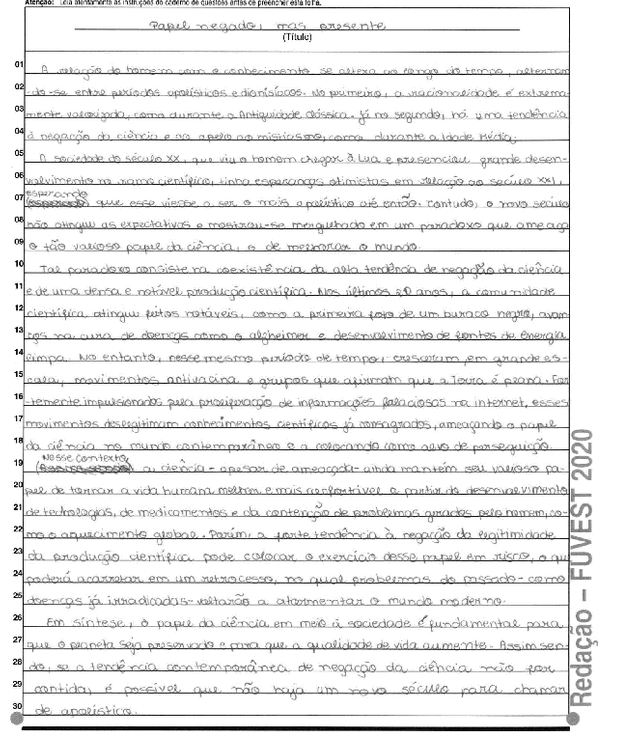 Atenção: Leia atentamente as instruções do caderno de questões antes de preencher esta folha.
Papel negado, mas presente
(Título)
01 A relação do homem com o conhecimento se altera ao longo do tempo, alternan
02 do-se entre períodos apolísticos e dionísiacos. No primeiro, a racionalidade é extrema-
03 mente valorizada, como durante a Antiguidade Clássica. Já no segundo, há uma tendência
04 à negação da ciência e ao apelo ao misticismo, como durante a Idade Média.
05 A sociedade do século XX, que viu o homem chegar à Lua e presenciou grande desen-
06 volvimento no ramo científico, tinha esperanças otimistas em relação ao século XXI,
07 esperando que esse viesse a ser o mais apolístico até então. Contudo, o novo século
08 não atingiu as expectativas e mostrou-se mergulhado em um paradoxo que ameaça
09 o tão valioso papel da ciência, o de melhorar o mundo.
10 Tal paradoxo consiste na coexistência da alta tendência de negação da ciência
11 e de uma densa e notável produção científica. Nos últimos 20 anos, a comunidade
12 científica atingiu feitos notáveis, como a primeira foto de um buraco negro, avan
13 ços na cura de doenças como o alzheimer e desenvolvimento de fontes de energia
14 limpa. No entanto, nesse mesmo período de tempo, cresceram, em grande es-
15 cala, movimentos antivacina e grupos que afirmam que a Terra é plana. For
16 temente impulsionados pela proliferação de informações falaciosas na internet, esses
17 movimentos deslegitimam conhecimentos científicos já consagrados, ameaçando o papel
18 da ciência no mundo contemporâneo e a colocando como alvo de perseguição.
19 Nesse contexto, a ciência - apesar de ameaçada - ainda mantém seu valioso pa-
20 pel de tornar a vida humana melhor e mais confortável a partir do desenvolvimento
21 de tecnologias, de medicamentos e da contenção de problemas gerados pelo homem, co-
22 mo o aquecimento global. Porém, a forte tendência à negação da legitimidade
23 da produção científica pode colocar o exercício desse papel em risco, o que
24 poderá acarretar em um retrocesso, no qual problemas do passado - como
25 doenças já irradicadas - voltarão a atormentar o mundo moderno.
26 Em síntese, o papel da ciência em meio à sociedade é fundamental para
27 que o planeta seja preservado e para que a qualidade de vida aumente. Assim sen-
28 do, se a tendência contemporânea de negação da ciência não for
29 contida, é possível que não haja um novo século para chamar
30 de apolístico.
Redação – FUVEST 2020